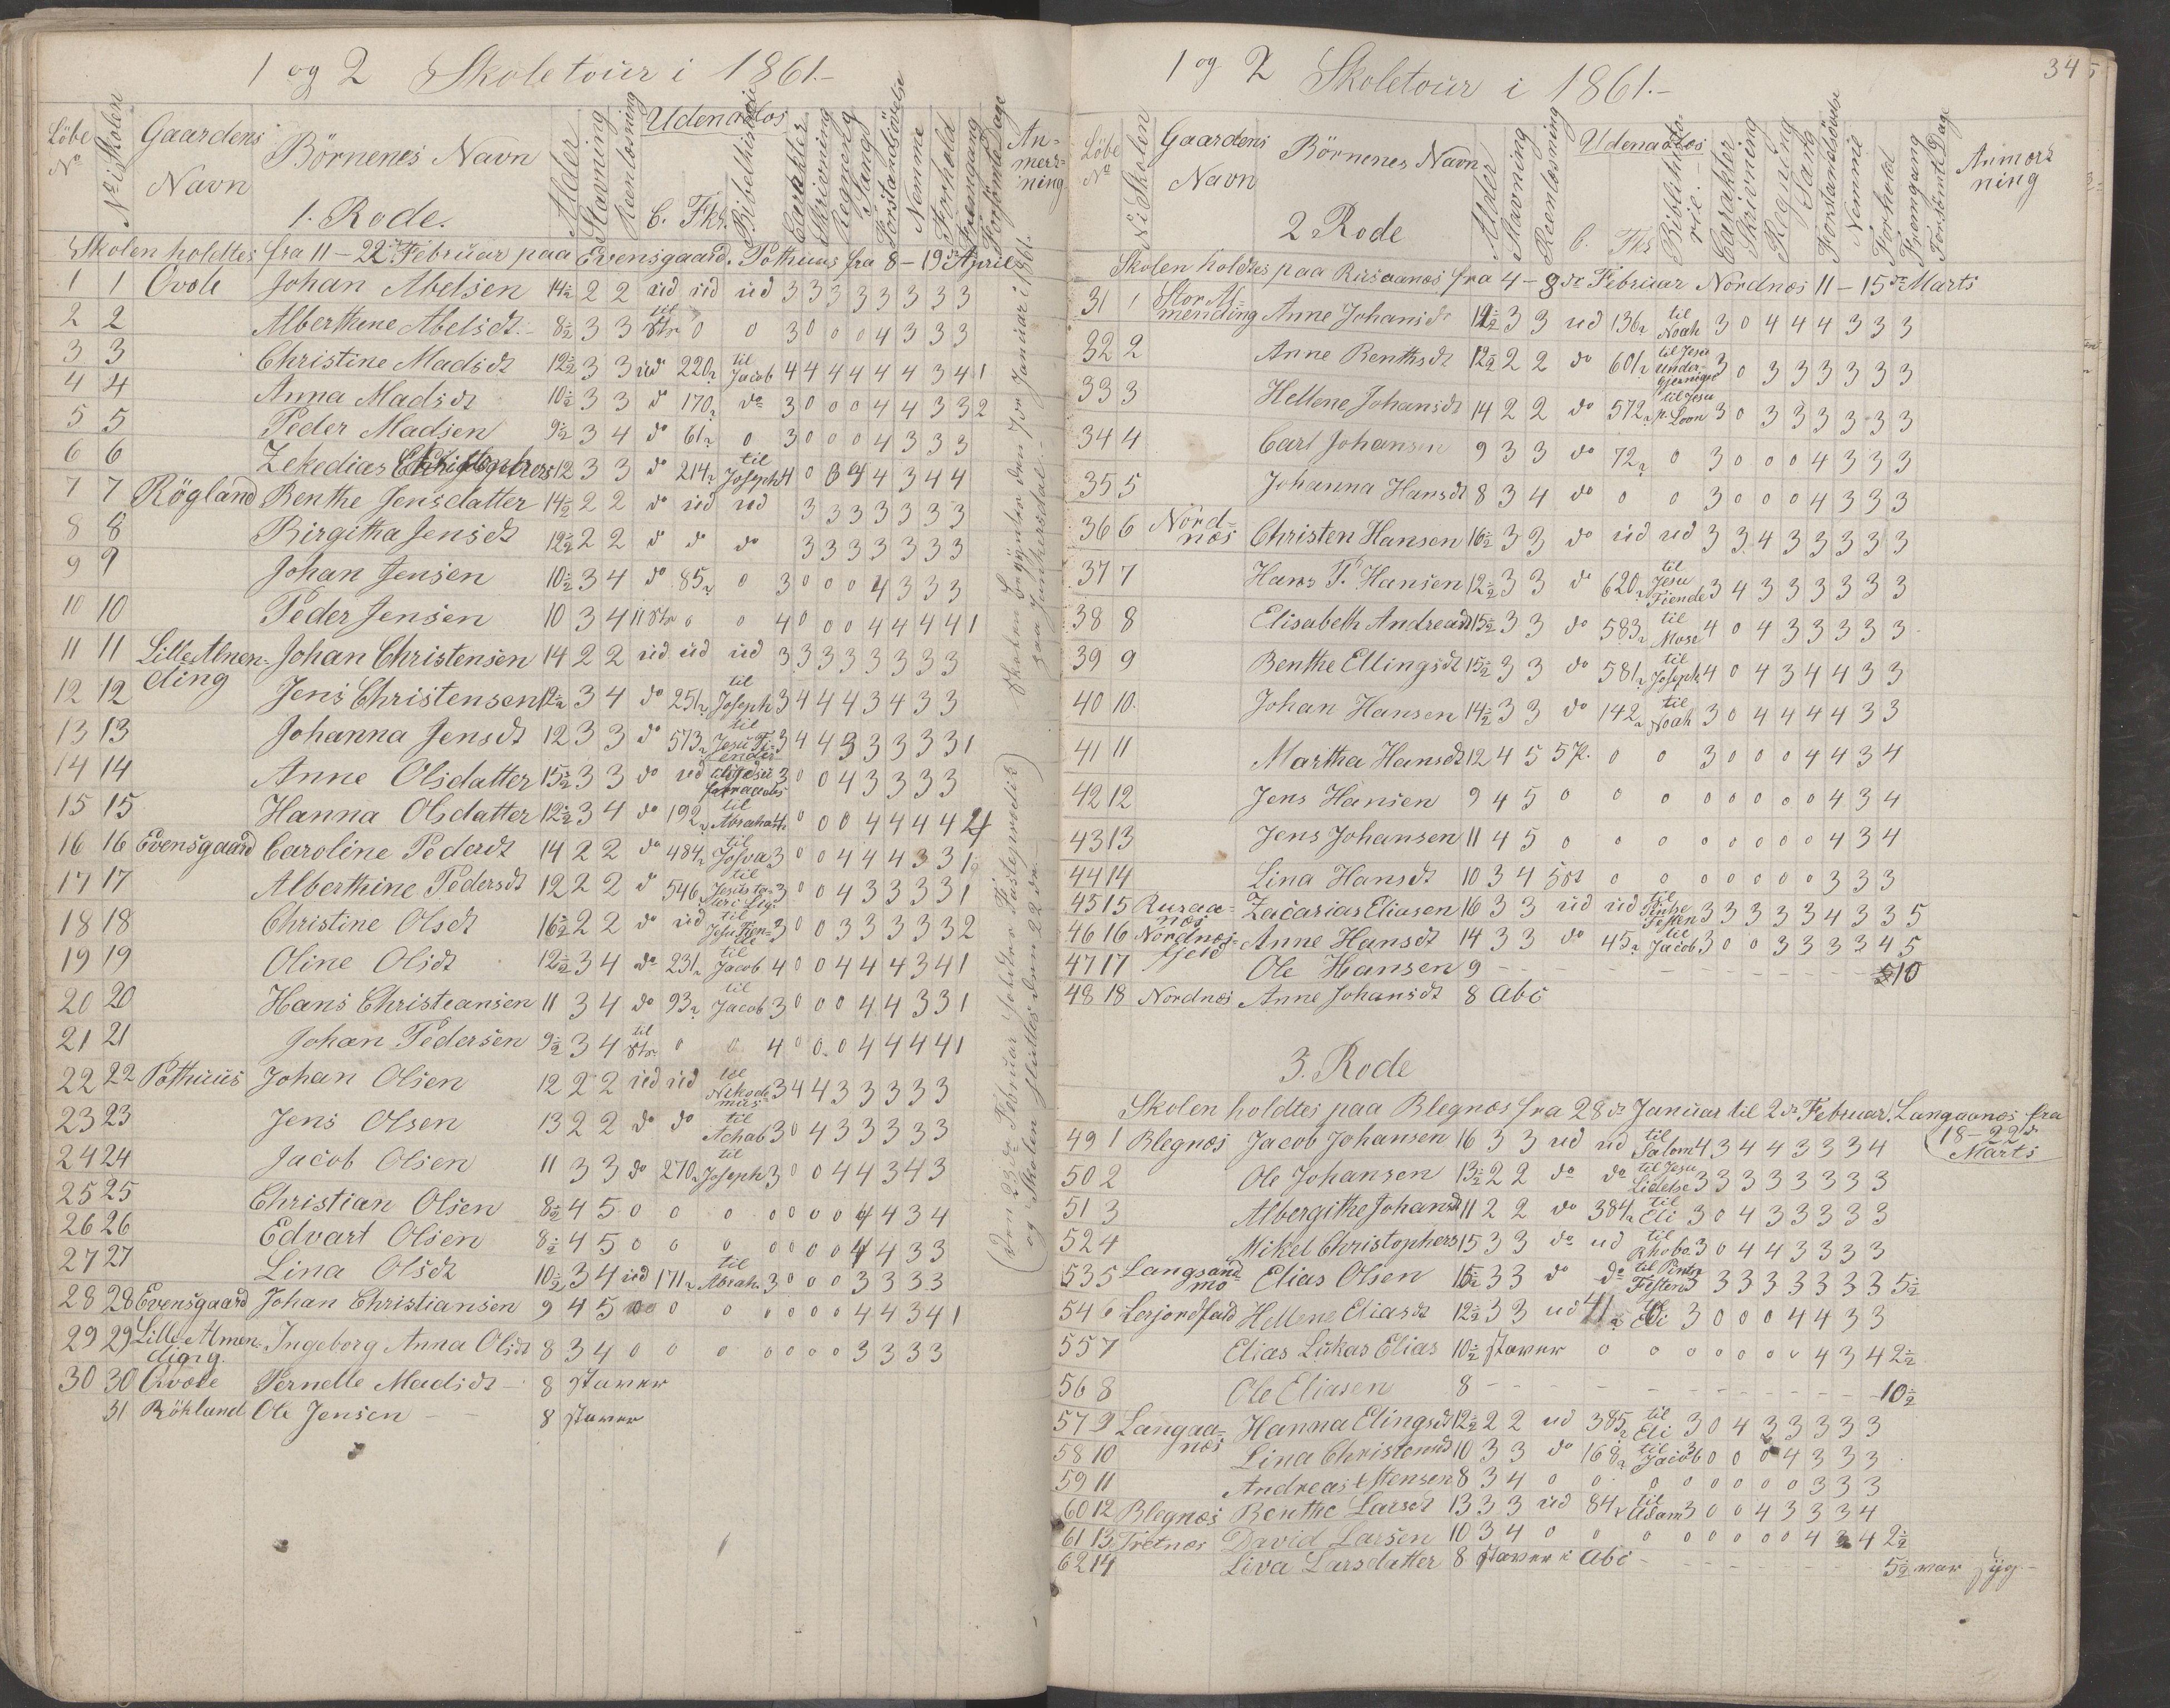 1 og 2 Skoletour i 1861.-
Löbe No
No i Skolen
Gaardens Navn
Börnenes Navn
Alder
Stavning
Reenlæsning
Udenadlæs
C. Fkr.
Bibelhistorie
Carakter
Skrivning
Regning
Sang
Forstandsövelse
Nemme
Forhold
Fremgang
Forsömte Dage
An-
mærk-
ning
1. Rode.
Skolen holdtes fra 11-22de Februar paa Evensgaard. Pothuus fra 8-19de April
1 1 Johan Abelsen 14½ 2 2 ud ud ud 3 3 3 3 3 3 3 3
2 2 Alberthine Abelsdt. 8½ 3 3 til 0 0 3 0 0 0 4 3 3 3
3 3 Christine Madsdt 12½ 3 3 ud 220 til Jacob 4 4 4 4 4 4 3 4 1
4 4 Anna Madsdt 10½ 3 3 do 170 do 3 0 0 0 4 4 3 3 2
5 5 Peder Madsen 9½ 3 4 do 61 0 3 0 0 0 4 3 3 3
6 6 Zekedias 12 3 3 do 214 til Joseph 4 0 3 4 4 3 4 4
7 7 Rögland Benthe Jensdatter 14½ 2 2 do ud ud 3 3 3 3 3 3 3 3
8 8 Birgitha Jensdt 12½ 2 2 do do do 3 3 3 3 3 3 3 3
9 9 Johan Jensen 10½ 3 4 do 85 0 3 0 0 0 4 3 3 3
10 10 Peder Jensen 10 3 4 11 0 0 4 0 0 0 4 4 4 4 1
11 11 Lille Almen-
ding Johan Christensen 14 2 2 ud ud ud 3 3 3 3 3 3 3 3
12 12 Jens Christensen 12½ 3 4 do 251 til Joseph 3 4 4 4 3 4 3 3
13 13 Johanna Jensdt 12 3 3 do 573 til Jesu Fi-
ender 3 4 4 3 3 3 3 3 1
14 14 Anne Olsdatter 15½ 3 3 do ud til Jesu 3 0 0 4 3 3 3 3
15 15 Hanna Olsdatter 12½ 3 4 do 192 til Abraham 4 0 0 0 4 4 4 4
16 16 Evensgaard Caroline Pedersdt 14 2 2 do 484 til Josva 3 0 0 4 4 4 3 3 1
17 17 Alberthine Pedersdt 12 2 2 do 546 til 3 0 0 4 3 3 3 3 1
18 18 Christine Olsdt 16½ 2 2 do ud til Jesu Fien-
de 3 0 0 3 3 3 3 3 2
19 19 Oline Olsdt 12½ 3 4 do 231 til Jacob 4 0 0 4 4 4 3 4 1
20 20 Hans Christeansen 11 3 4 do 93 til Jacob 3 0 0 0 4 4 3 3 1
21 21 Johan Pedersen 9½ 3 4 til 0 0 4 0 0 0 4 4 4 4 1
22 22 Pothuus Johan Olsen 12 2 2 ud ud til Nikode-
mus 3 4 4 3 3 3 3 3
23 23 Jens Olsen 13 2 2 do do til Achab 3 0 4 3 3 3 3 3
24 24 Jacob Olsen 11 3 3 do 270 til Joseph 3 0 0 4 4 3 4 3
25 25 Christian Olsen 8½ 4 5 0 0 0 0 0 0 0 4 4 3 4
26 26 Edvart Olsen 8½ 4 5 0 0 0 0 0 0 0 4 4 3 3
27 27 Lina Olsdt 10½ 3 4 ud 171 til Abrah. 3 0 0 0 3 3 3 3
28 28 Evensgaard Johan Christiansen 9 4 5 0 0 0 0 0 0 0 4 4 3 4 1
29 29 Lille Almen-
digng. Ingeborg Anna Olsdt 8 3 4 0 0 0 0 0 0 0 3 3 3 3
30 30 Pernelle Madsdt - 8 staver
31 Rökland Ole Jensen - - 8 staver
Skolen begyndte den 7de Januar 1861.
paa Junkersdal.-
(Den 23de Februar holdtes Fasteprædik)
og Skolen sluttes den 22de
1 og 2 Skoletour i 1861.-
34
Löbe No
N i Skolen
Gaardens Navn
Börnenes Navn
Alder
Stavning
Reenlæsning
Udenadlæs
C. Fkr
Biblihisto-
rie.-
Carakter
Skrivning
Regning
Sang
Forstandsövelse
Nemme
Forhold
Framgang
Forsömte Dage
Anmærk
ning
2 Rode
Skolen holdtes paa Rusaanæs fra 4-8de Februar Nordnæs 11-15de Marts
31 1 Stor Al-
mending Anne Johansdt 12½ 3 3 ud 136 til Noah 3 0 4 4 4 3 3 3
32 2 Anne Benthsdt 12½ 2 2 do 601 til Jesu Under-
gjerninger 3 0 3 3 3 3 3 3
33 3 Hellene Johansdt 14 2 2 do 572 til Jesu 3 0 3 3 3 3 3 3
34 4 Carl Johansen 9 3 3 do 72 0 3 0 0 0 4 3 3 3
35 5 Johanna Hansdt 8 3 4 do 0 0 3 0 0 0 4 3 3 3
36 6 Nord-
næs Christen Hansen 16½ 3 3 do ud ud 3 3 4 3 3 3 3 3
37 7 Hans P. Hansen 12½ 3 3 do 620 til Jesu Fiende 3 4 3 3 3 3 3 3
38 8 Elisabeth Andreasdt 15½ 3 3 do 583 til Mose 4 0 4 3 3 3 3 3
39 9 Benthe Ellingsdt 15½ 3 3 do 581 til Joseph 4 0 4 3 4 4 3 3
40 10. Johan Hansen 14½ 3 3 do 142 til Noah 3 0 4 4 4 4 3 3
41 11 Martha Hansdt 12 4 5 5 P. 0 0 3 0 0 0 4 4 3 4
42 12 Jens Hansen 9 4 5 0 0 0 0 0 0 0 0 4 3 4
43 13 Jens Johansen 11 4 5 0 0 0 0 0 0 0 0 4 3 4
44 14 Lina Hansdt 10 3 4 0 0 0 0 0 0 0 3 3 3
45 15 Rusaa-
næs Zacarias Eliasen 16 3 3 ud ud til Pintse Festen 3 3 3 3 3 4 3 3 5
46 16 Nordnæs-
fjeld Anne Hansdt 14 3 3 do 45 til Jacob 3 0 0 3 3 3 3 4 5
47 17 Ole Hansen 9 - - - 10
48 18 Nordnæs Anne Johansdt 8 Abc
3. Rode
Skolen holdtes paa Blegnæs fra 28de Januar til 2de Februar. Langaanæs fra
(18-22de
Marts
49 1 Blegnæs Jacob Johansen 16 3 3 ud ud til Salom 4 3 4 4 3 3 3 4
50 2 Ole Johansen 13½ 2 2 do do til Jesu Lidelse 3 3 3 3 3 3 3 3
51 3 Albergithe Johansdt 11 2 2 do 384 til Eli 3 0 4 3 3 3 3 3
52 4 Mikel Christophers 15 3 3 do ud til Rhobo. 3 0 4 4 3 3 3 3
53 5 Langsand-
mo Elias Olsen 15½ 3 3 do do til Pintse Festen 3 3 3 3 3 3 3 3 5½
54 6 Hellene Eliasdt 12½ 3 3 ud 41 til Eli 3 0 0 0 4 4 3 3
55 7 Elias Lukas Elias 10½ staver 0 0 0 0 0 0 0 4 3 4 2½
56 8 Ole Eliasen 8 - - - 10½
57 9 Langaa-
næs Hanna Elingsdt 12½ 2 2 ud 385 til Eli 3 0 4 3 3 3 3 3
58 10 Lina Christensdt 10 3 3 do 168 til Jacob 3 0 0 0 4 3 3 3
59 11 Andreas Stensen 8 3 4 0 0 0 0 0 0 0 0 3 3 3
60 12 Blegnæs Benthe Larsdt 13 3 3 ud 84 til Adam 3 0 0 4 3 3 3 4
61 13 Tretnæs David Larsen 10 3 4 0 0 0 0 0 0 0 0 4 3 4 2½
62 14 Liva Larsdatter 8 staver i Abc - - - 5½ var syg-